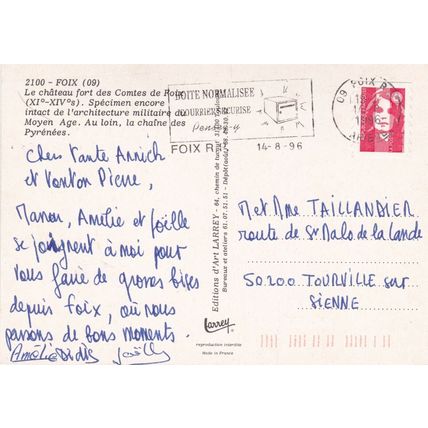 2100 - FOIX (09)
Le château fort des Comtes de Foix
(XI°-XIV°s). Spécimen encore
intact de l'architecture militaire du
Moyen Age. Au loin, la chaîne des
Pyrénées.
BOITE NORMALISEE
COURRIER SECURISE
Pensez-y
FOIX RP
14-8-96
09 FOIX RP
1996
Chers Tante Annick
et Tonton Pierre,
Manon, Amélie et Joëlle
se joignent à moi pour
vous faire de grosses bises
depuis Foix, où nous
passons de bons moments.
Amélie Joëlle
Editions d'Art LARREY - 64, chemin de
Bureaux et ateliers 61.07.51.51 - Dépôt
Larrey
reproduction interdite
Made in France
M et Mme TAILLANDIER
route de St Malo de la Lande
50200 TOURVILLE sur
SIENNE